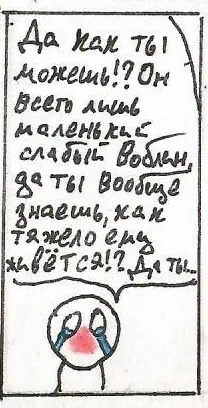 Да как ты
можешь!? Он
всего лишь
маленький
слабый Воблин,
да ты вообще
знаешь, как
тяжело ему
живётся!? Да ты...